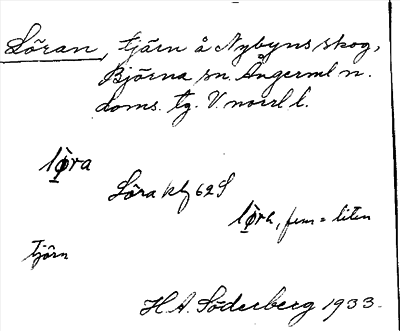 Löran, tjärn å Nybyns skog,
Björna sn. Ångerml n.
doms. tg. V norrl l.
lö̀ra
Löra kbf 62 S
lö̀ra, fem = liten
tjörn
H.A. Söderberg 1933.